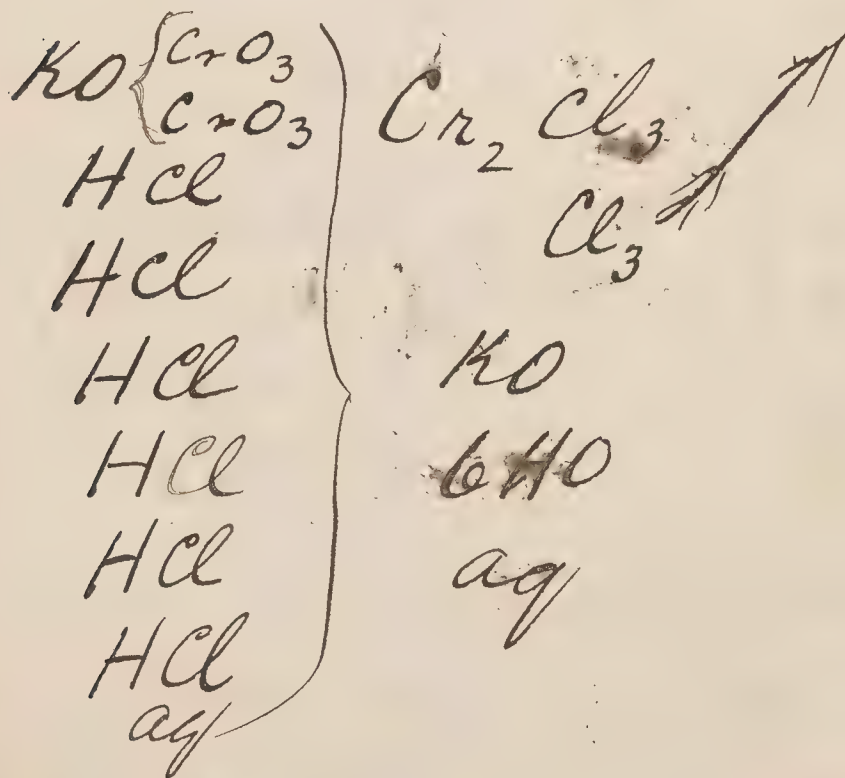 KO { CrO3
CrO3
HCl
HCl
HCl
HCl
HCl
HCl
aq
Cr2 Cl3
Cl3
KO
6HO
aq